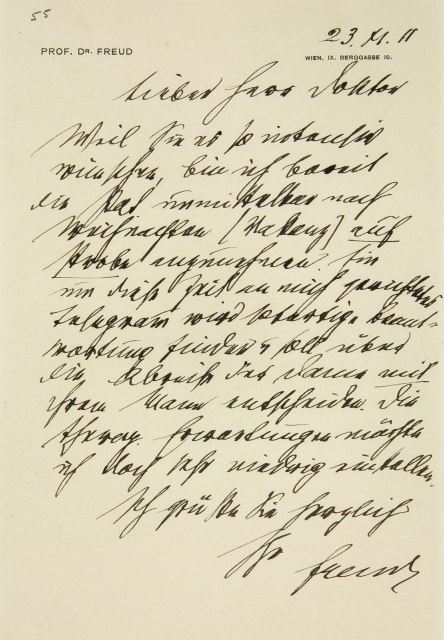 55
23. XI. 11
PROF. DR. FREUD
WIEN, IX. BERGGASSE 19.
Lieber Herr Doktor
Weil Sie es so intensiv
wünschen, bin ich bereit
die Pat unmittelbar nach
Weihnachten (Vakanz) auf
Probe anzunehmen. Ein
um diese Zeit an mich gerichtetes
Telegram wird sofortige Beant-
wortung finden u über
die Abreise der Dame mit
ihrem Mann entscheiden. Die
Therap. Erwartungen möchte
ich doch sehr niedrig einstellen.
Ich grüße Sie herzlich
Ihr
Freud